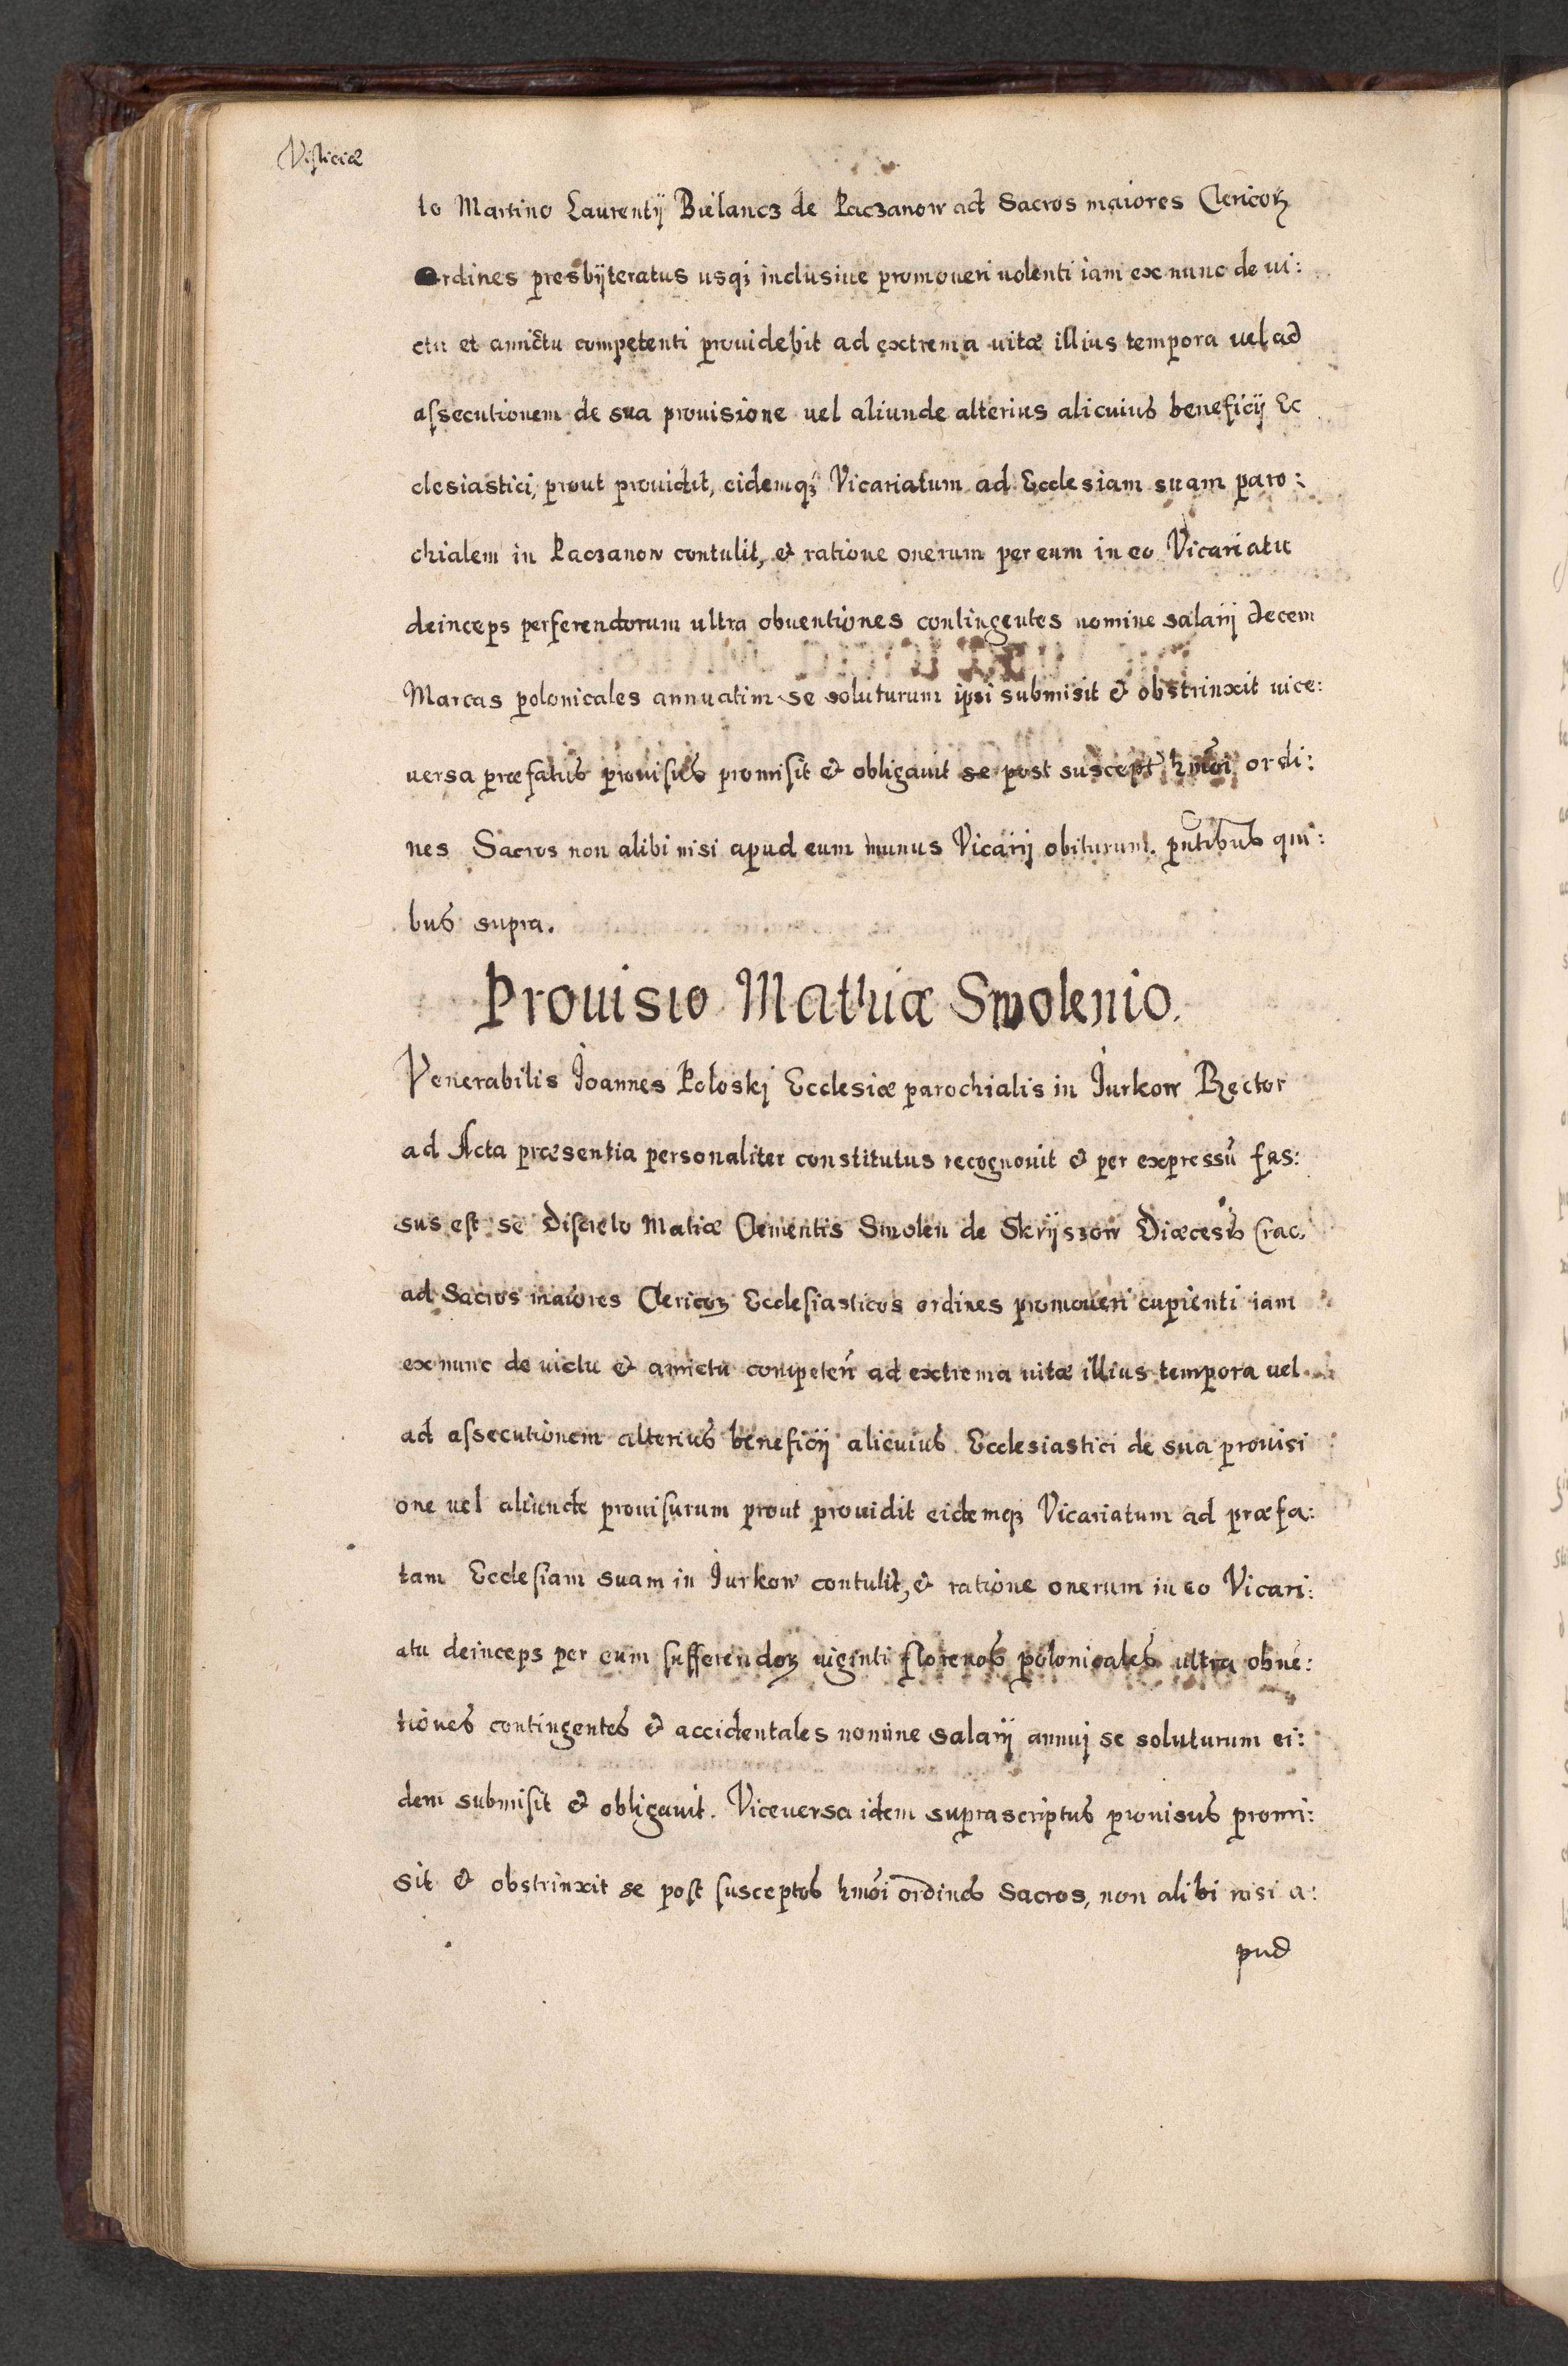 Visliciæ
to Martino Laurentij Bielancz de Paczanow ad Sacros maiores Clericoꝝ
Ordines presbÿteratus usqꝫ inclusiue promoueri uolenti iam ex nunc de ui:
ctu et amictu competenti prouidebit ad extrema uitæ illius tempora uel ad
assecutionem de sua prouisione uel aliunde alterius alicuius beneficij Ec
clesiastici, prout prouidit, eidemqꝫ Vicariatum ad Ecclesiam suam paro:
chialem in Paczanow contulit, & ratione onerum per eum in eo Vicariatu
deinceps perferendorum ultra obuentiones contingentes nomine salarij decem
Marcas polonicales annuatim se soluturum ipsi submisit & obstrinxit uice:
uersa præfatus prouisus promisit & obligauit se post suscept hmōi ordi:
nes Sacros non alibi nisi apud eum munus Vicarij obiturum. pn̄tibus qui:
bus supra.
Prouisio Mathiæ Smolenio.
Venerabilis Joannes Poloskj Ecclesiæ parochialis in Jurkow Rector
ad Acta præsentia personaliter constitutus recognouit & per expressū fas:
sus est se Discreto Matiæ Clementis Smolen de Skrÿszow Diæcesis Crac.
ad Sacros maiores Clericoꝝ Ecclesiasticos ordines promoueri cupienti iam
ex nunc de uictu & amictu competen̄ ad extrema uitæ illius tempora uel
ad assecutionem alterius beneficij alicuius Ecclesiastici de sua prouisi
one uel aliunde prouisurum prout prouidit eidemqꝫ Vicariatum ad præfa:
tam Ecclesiam suam in Jurkow contulit, & ratione onerum in eo Vicari:
atu deinceps per eum sufferendoꝝ uiginti florenos polonicales ultra obuē:
tiones contingentes & accidentales nomine salarij annuj se soluturum ei:
dem submisit & obligauit. Viceuersa idem suprascriptus prouisus promi:
sit & obstrinxit se post susceptos hmōi ordines Sacros, non alibi nisi a:
pud